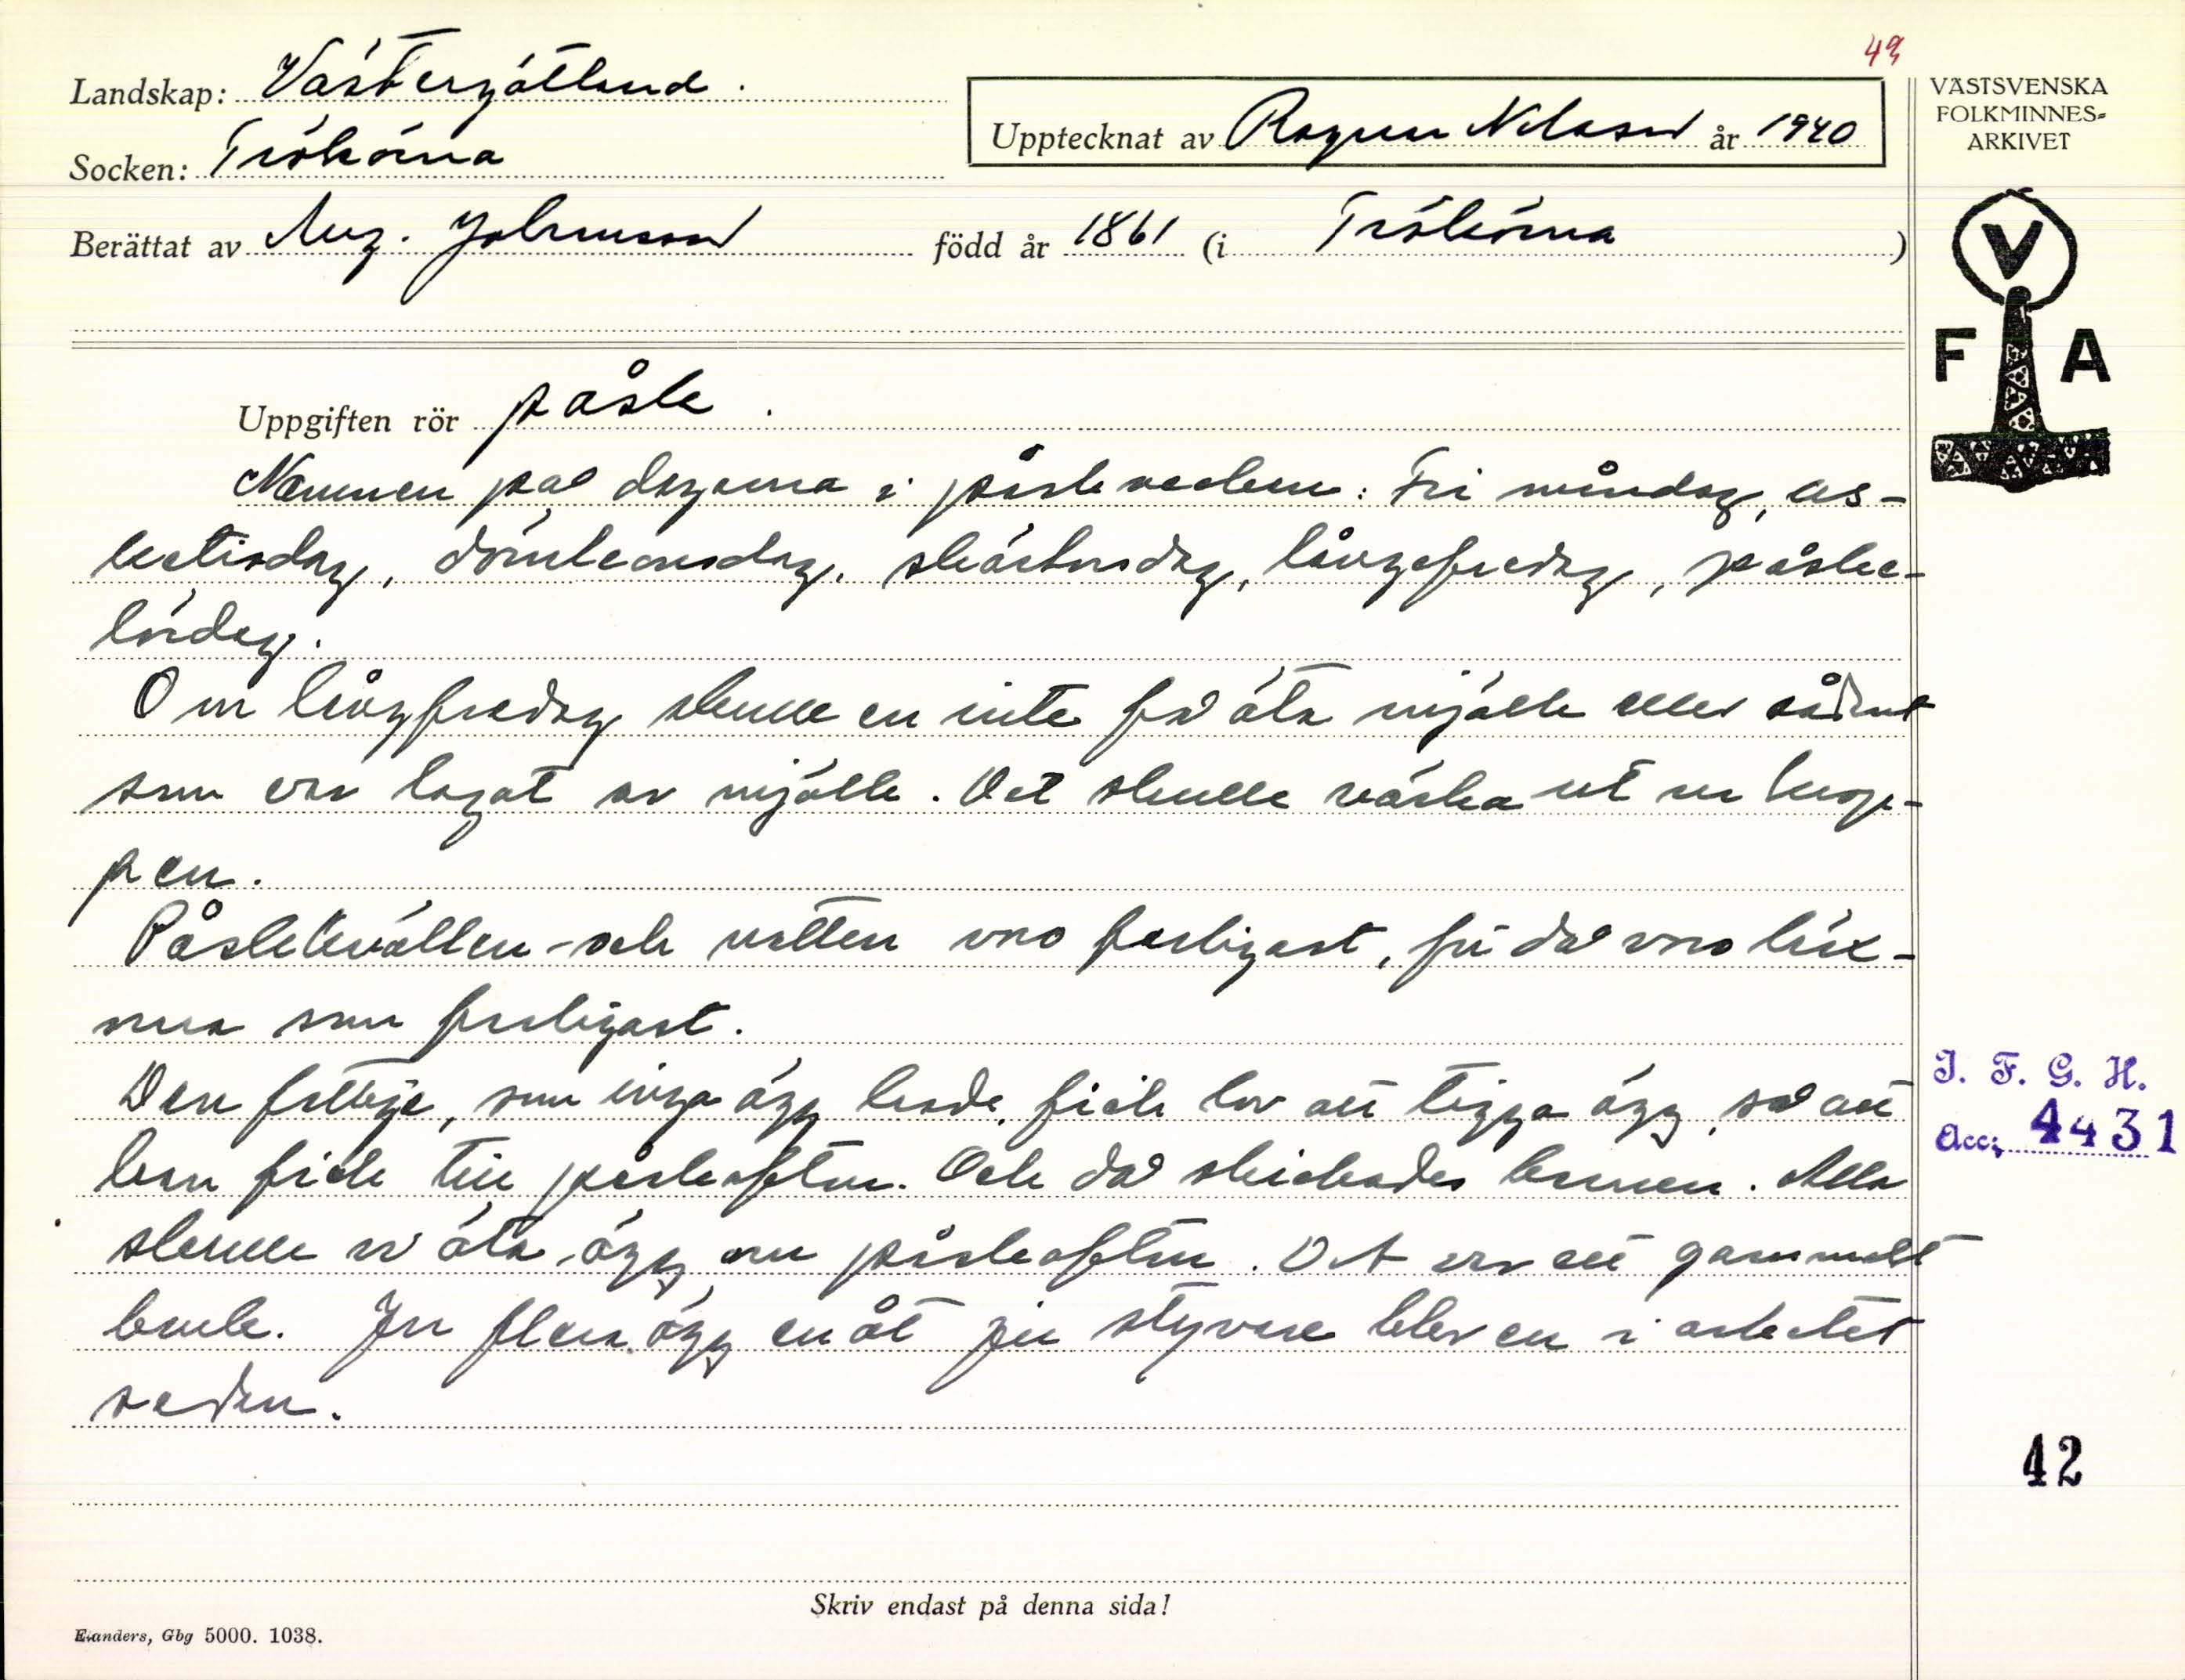 49
Landskap: Västergötland.
Socken: Trökörna
Upptecknat av Ragnar Nilsson år 1940
Berättat av Aug. Johansson född år 1861 (i Trökörna)
VÄSTSVENSKA
FOLKMINNES=
ARKIVET
V
F A
Uppgiften rör påsk.
Namnen på dagarna i påskveckan: Fri måndag, as-
ketisdag, dömleonsdag, skärtorsdag, långefredag, påske-
lördag.
Om långfredag skulle en inte få äta mjölk eller sådant
som var lagat av mjölk. Det skulle värka ut ur krop-
pen.
Påskekvällen och natten voro farligast, för då voro häx-
orna som farligast.
Den fattige, som inga ägg hade, fick lov att tigga ägg, så att
han fick till påskafton. Och då skickades barnen. Alla
skulle vi äta ägg om påskafton. Det var ett gammalt
bruk. Ju flera ägg en åt ju styvare blev en i arbetet
sedan.
I. F. G. H.
Acc; 4431
42
Skriv endast på denna sida!
Elanders, Gbg 5000. 1038.